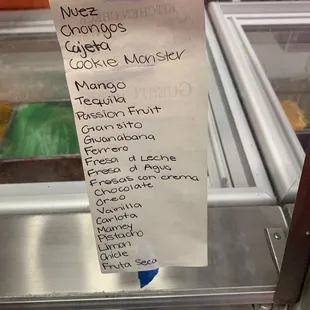 Nuez
Chongos
Cajeta
Cookie Monster
Mango
Tequila
Passion Fruit
Gansito
Guanabana
Ferrero
Fresa d Leche
Fresa d Agua
Fresas con crema
Chocolate
Oreo
Vainilla
Carlota
Mamey
Pistacho
Limon
Chicle
Fruta Seca